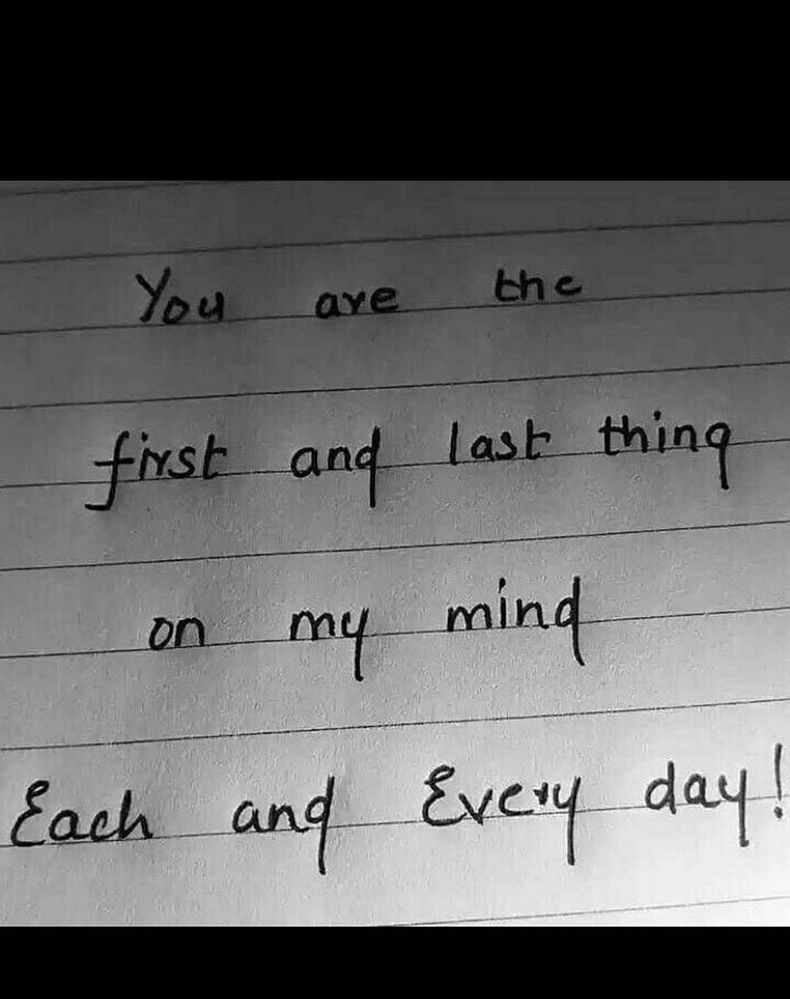 You are the
first and last thing
on my mind
Each and Every day!